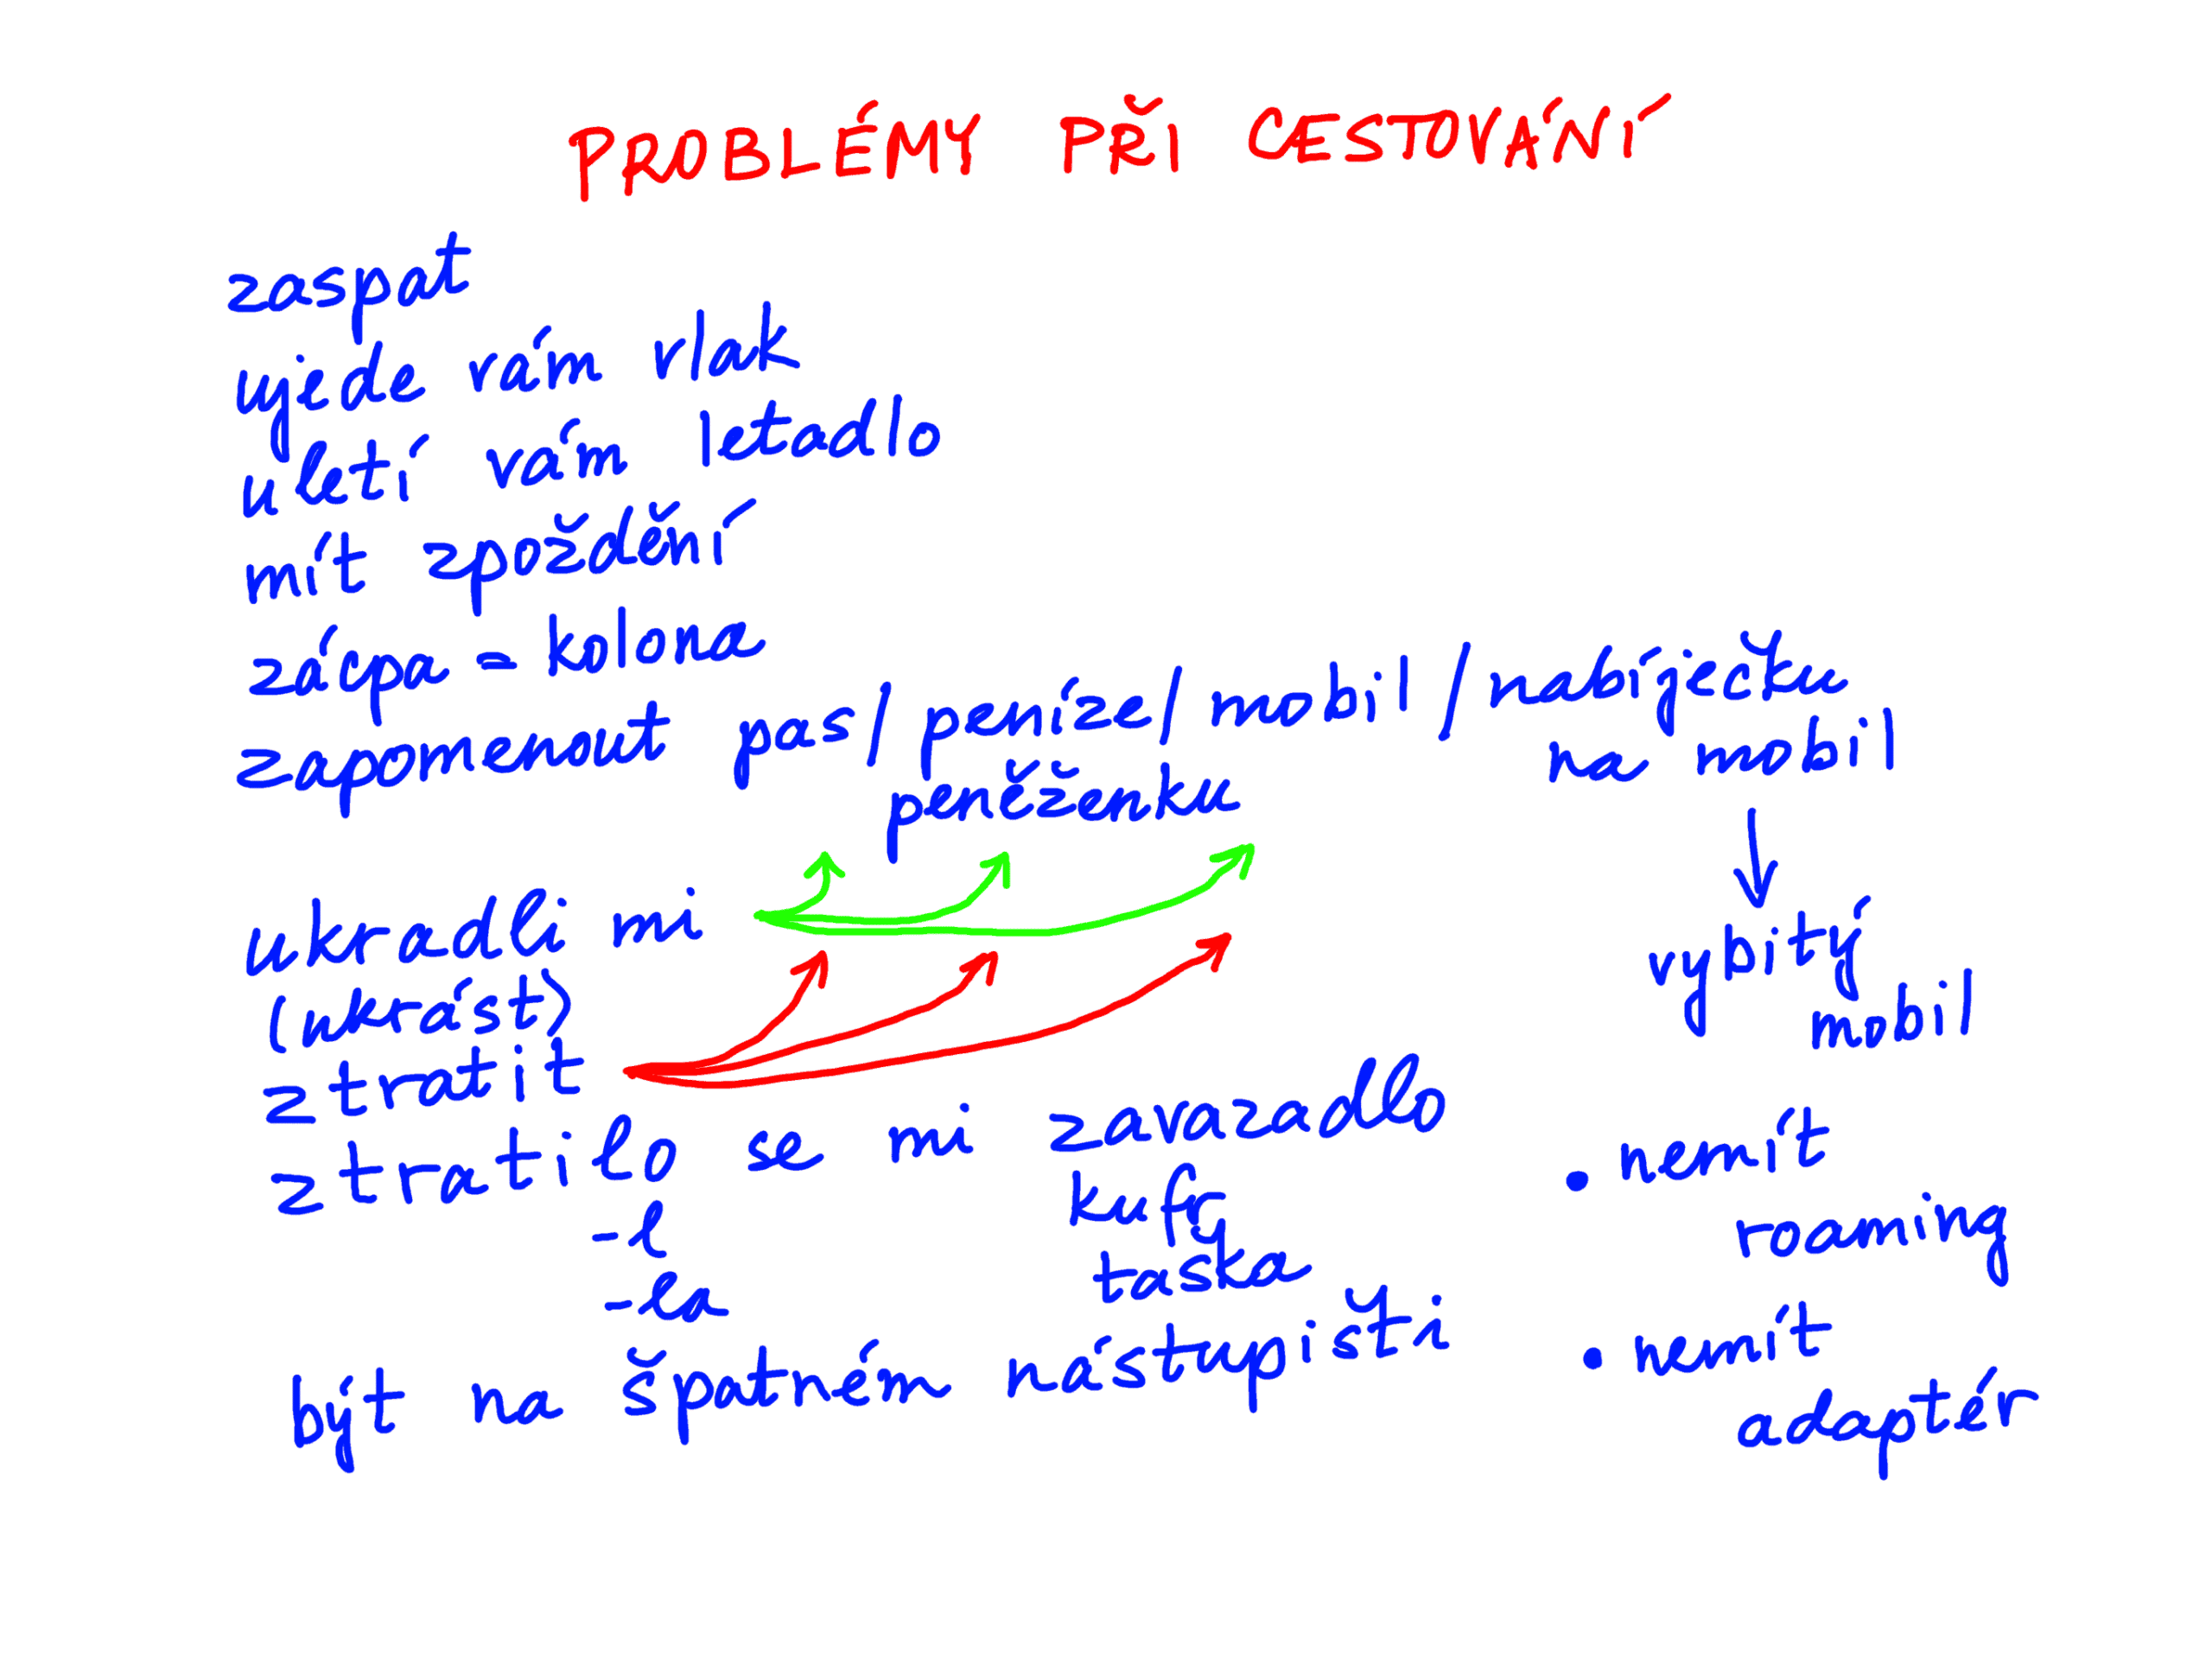 PROBLÉMY PŘI CESTOVÁNÍ
zaspat
ujede vám vlak
uletí vám letadlo
mít zpoždění
zácpa = kolona
zapomenout pas/ peníze/ mobil / nabíječku
na mobil
peněženku
ukradli mi
(ukrást)
ztratit
vybitý
mobil
ztratilo se mi zavazadlo
-l kufr
-la taška
být na špatném nástupišti
• nemít
roaming
• nemít
adaptér